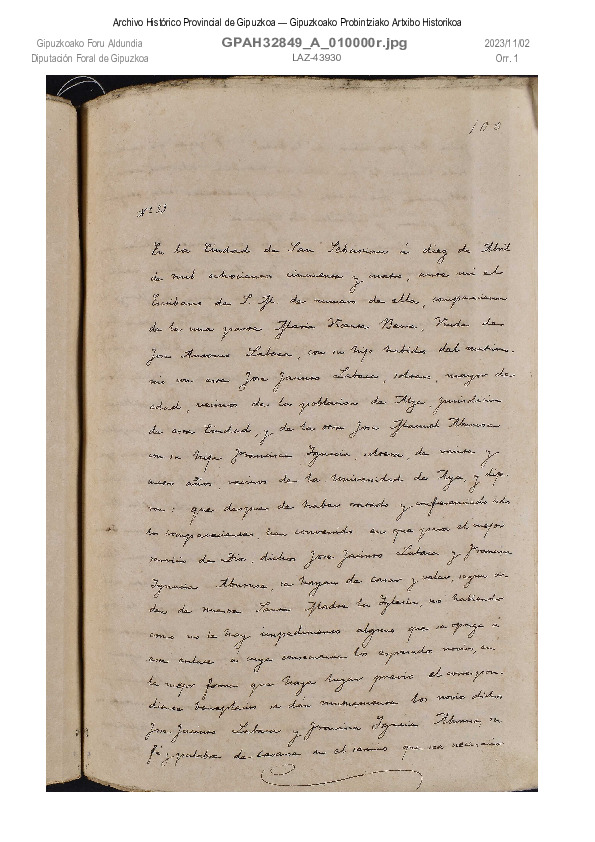 Archivo Histórico Provincial de Gipuzkoa — Gipuzkoako Probintziako Artxibo Historikoa
Gipuzkoako Foru Aldundia
Diputación Foral de Gipuzkoa
GPAH32849_A_010000r.jpg
LAZ-43930
2023/11/02
Orr. 1
En la Ciudad de San Sebastian á diez de Abril
de mil ochocientos cincuenta y cuatro, ante mi el
Escribano de S. M. de numero de ella, comparecieron
de la una parte Maria Vicenta Viuda de
José Antonio Labaca, con su hijo habido del matrimo-
nio con ese José Labaca, soltero, mayor de
edad, vecinos de la poblacion de Alza jurisdiccion
de esta Ciudad, y de la otra José Manuel
con su hija Francisca Ygnacia, soltera, de veinte y
años, vecinos de la Universidad de Aya, y dige-
ron: que despues de haber tratado y conferenciado
los comparecientes, han convenido en que para el mejor
servicio de Dios dichos José Labaca y Francisca
Ygnacia se hayan de casar y velar, segun or-
den de nuestra Santa Madre la Iglesia, no habiendo
como no le hay impedimento alguno que se oponga á
este enlace á cuya consecuencia los espresados novios, en
la mejor forma que haya lugar previo el correspon-
diente se dan mutuamente los novios dichos
José Labaca y Francisca Ygnacia su
fé y palabra de casarse en el que sea necesario